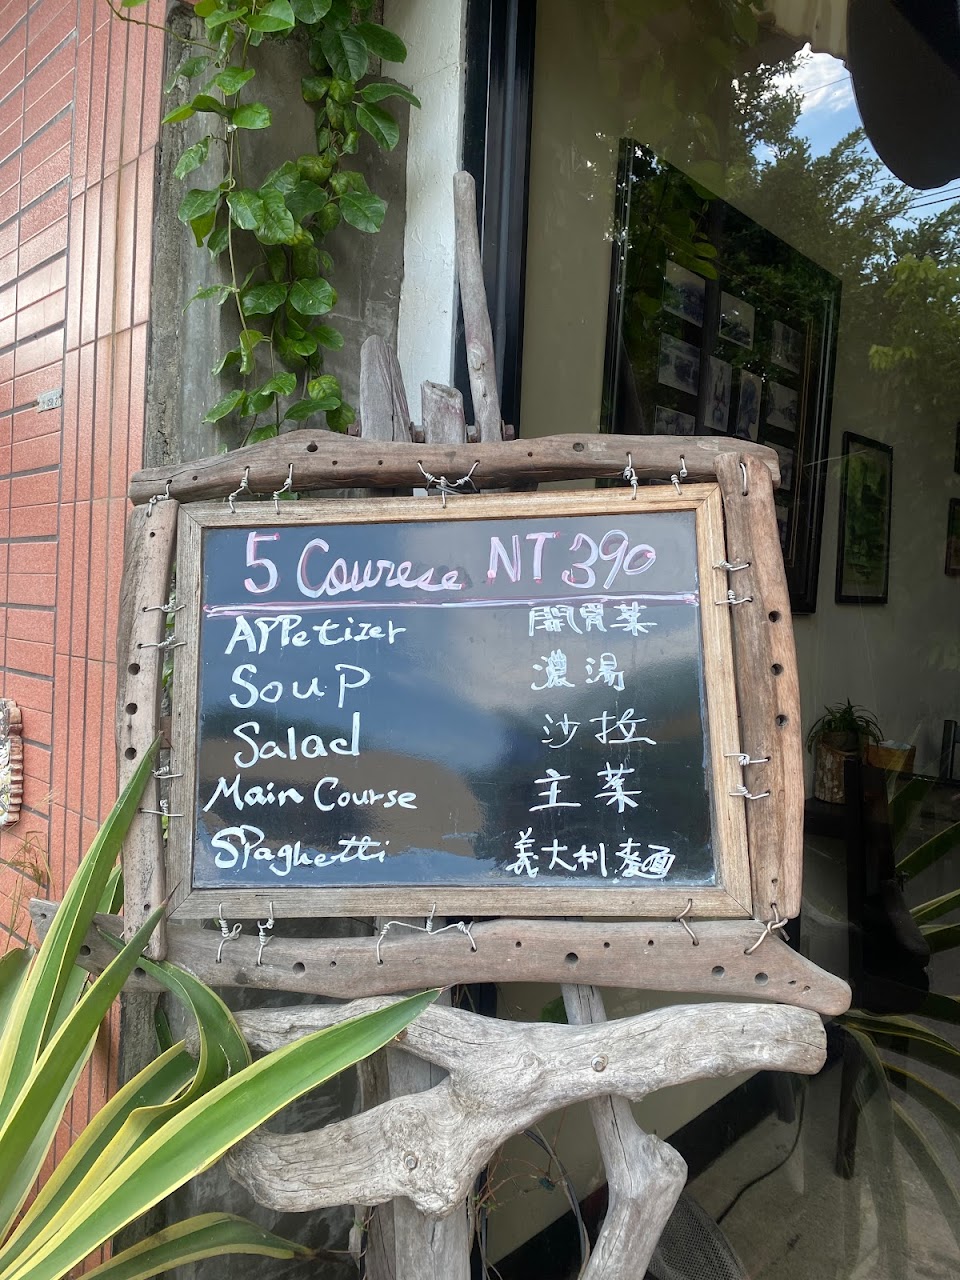 5 Courese NT 390
Appetizer 開胃菜
Soup 濃湯
Salad 沙拉
Main Course 主菜
Spaghetti 義大利麵